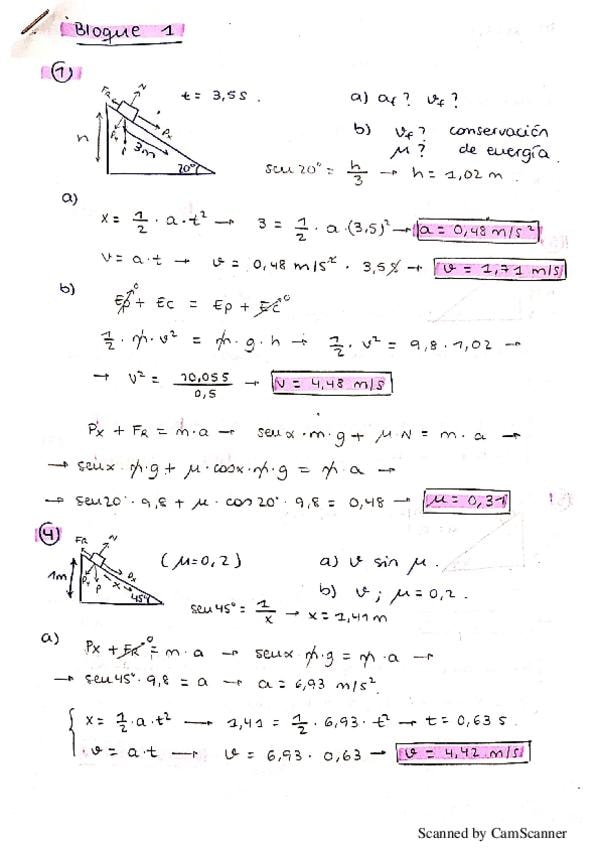 Bloque 1
1
t = 3,5 s.
a) af? vf?
b) vf? conservación
μ? de energía
FR N Px Py P h 3m 20°
sen 20° = h/3 → h = 1,02 m.
a)
x = 1/2 · a · t² → 3 = 1/2 · a · (3,5)² → a = 0,48 m/s²
v = a · t → v = 0,48 m/s² · 3,5 s → v = 1,71 m/s
b)
Ep⁰ + Ec = Ep + Ec⁰
1/2 · m · v² = m · g · h → 1/2 · v² = 9,8 · 1,02 →
→ v² = 10,055/0,5 → v = 4,48 m/s
Px + FR = m · a → senx · m · g + μ · N = m · a →
→ senx · m · g + μ · cosx · m · g = m · a →
→ sen20° · 9,8 + μ · cos 20° · 9,8 = 0,48 → μ = 0,31
4
FR N Px Py P x 1m 45°
(μ=0,2)
a) v sin μ.
b) v ; μ = 0,2.
sen 45° = 1/x → x = 1,41 m
a)
Px + FR⁰ = m · a → senx · m · g = m · a →
→ sen45° · 9,8 = a → a = 6,93 m/s².
x = 1/2 · a · t² → 1,41 = 1/2 · 6,93 · t² → t = 0,63 s.
v = a · t → v = 6,93 · 0,63 → v = 4,42 m/s
Scanned by CamScanner